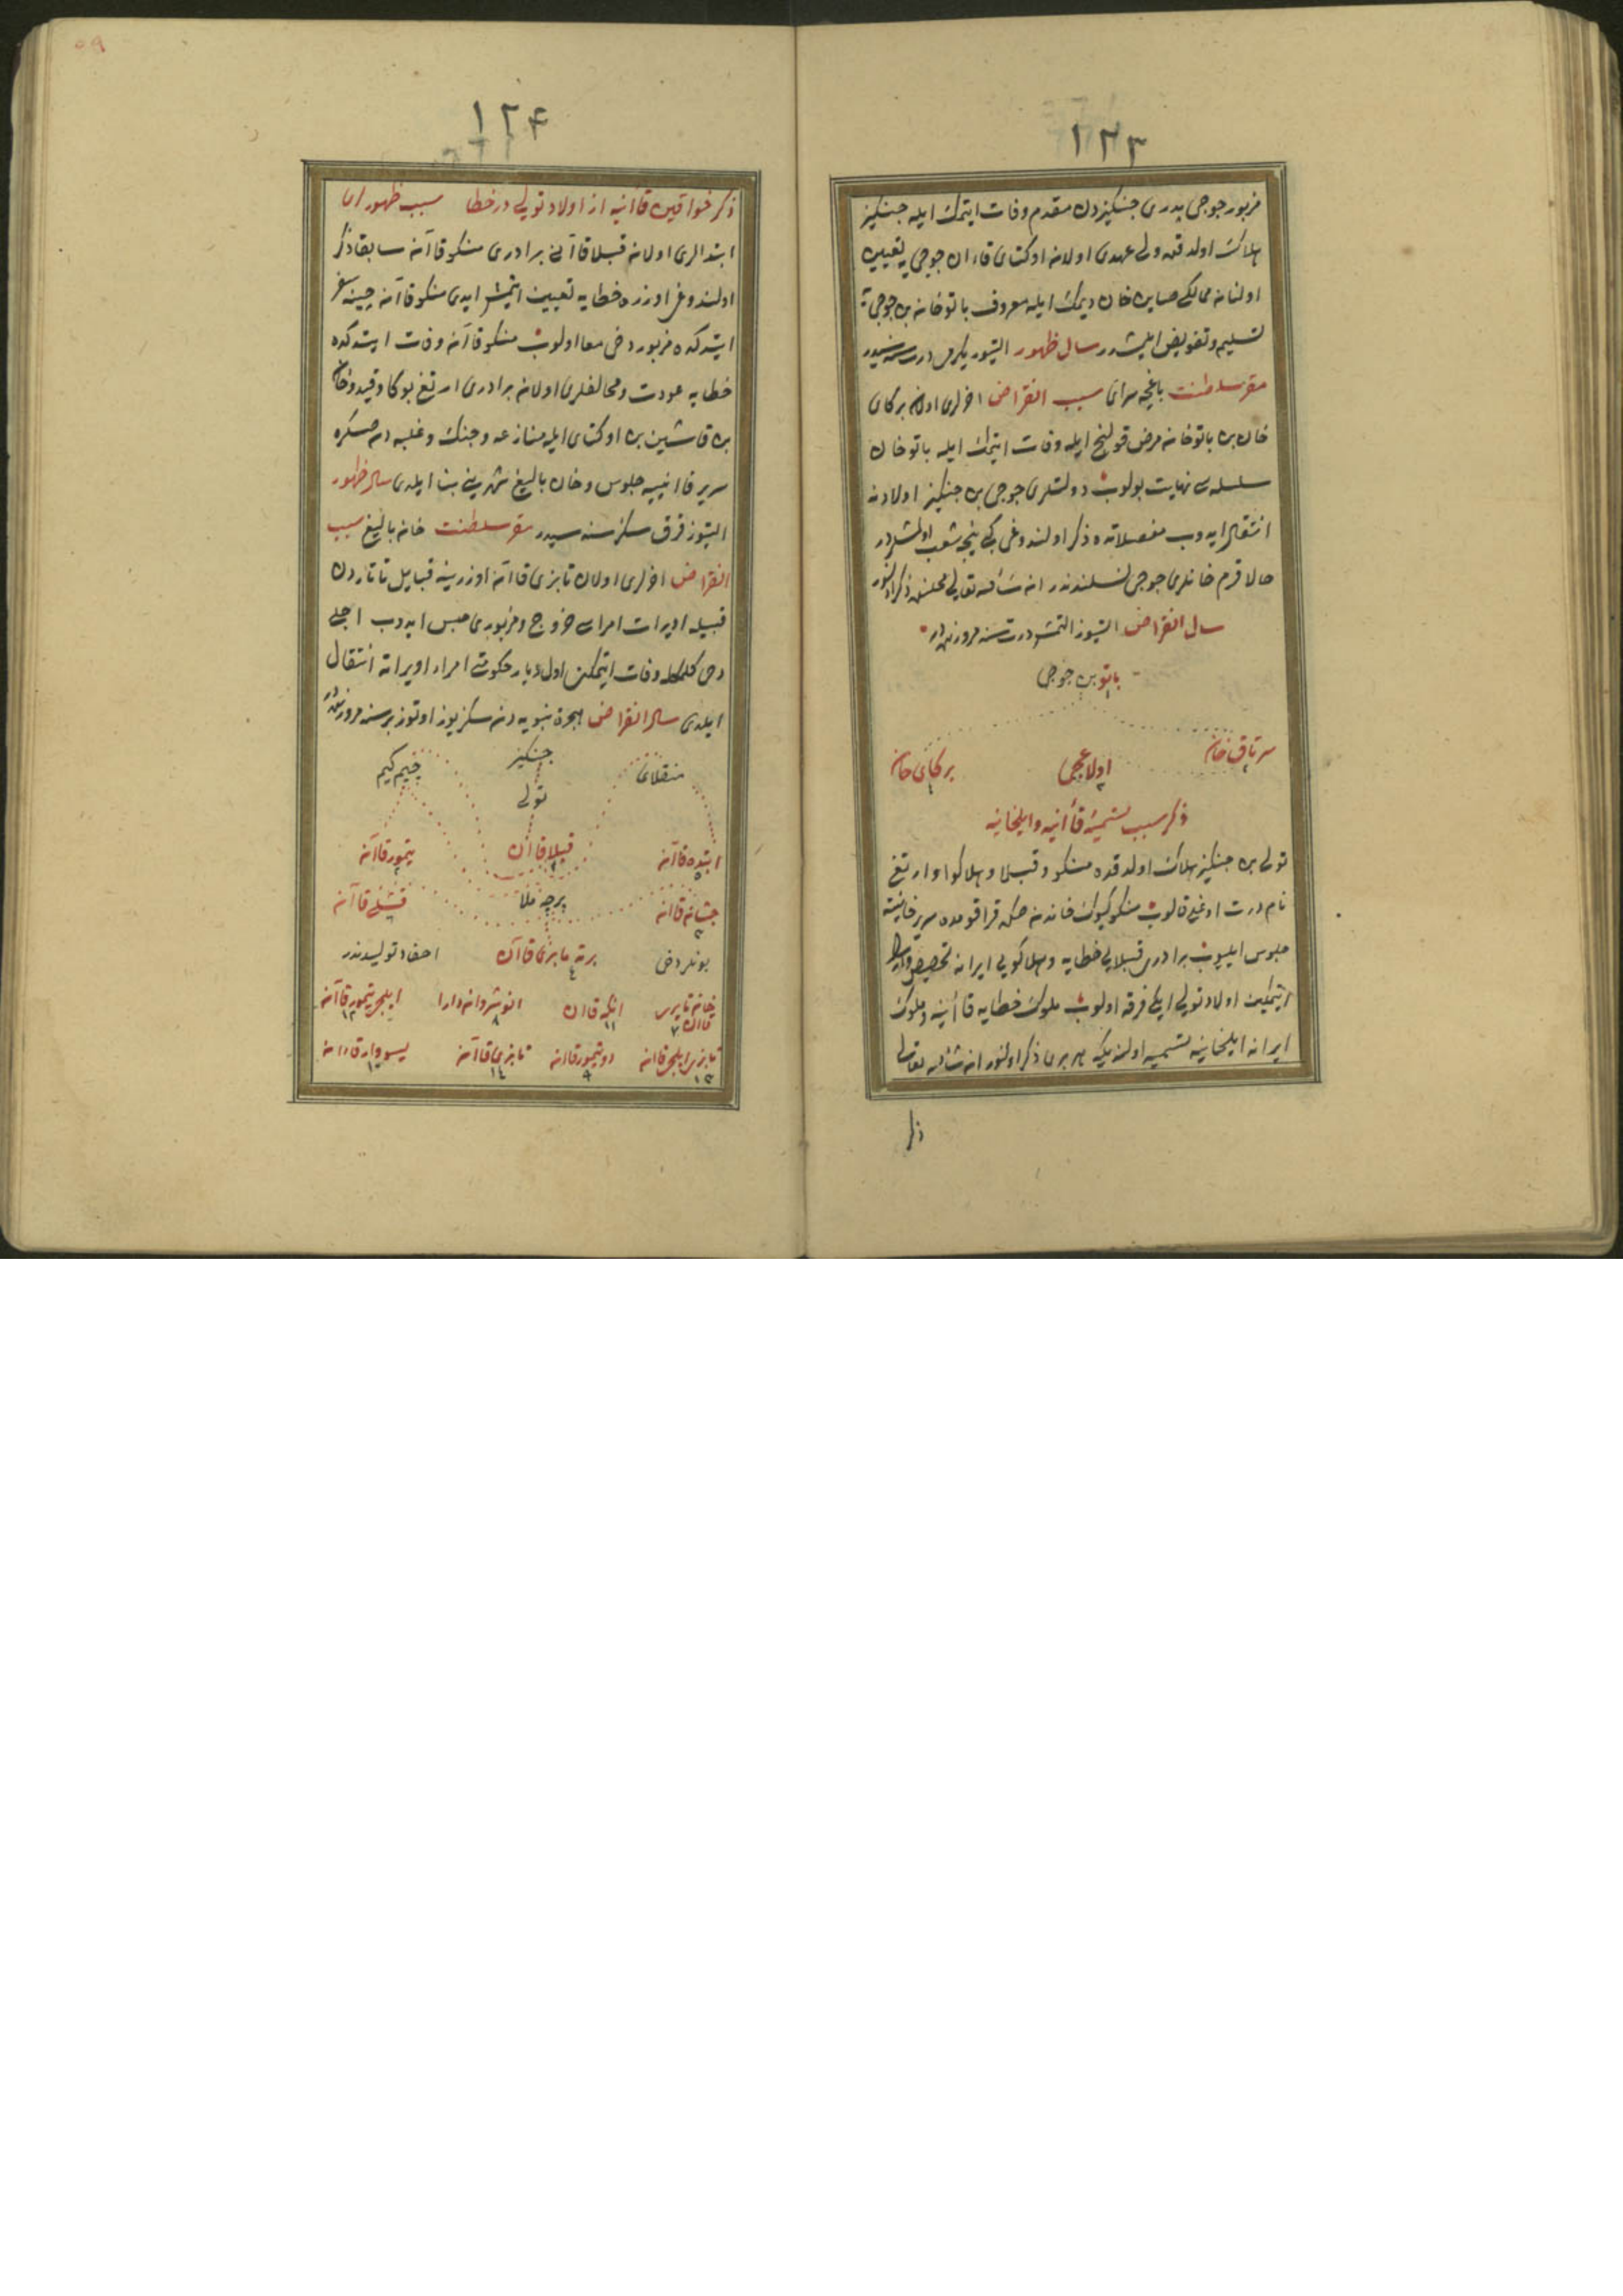 ١٢٣
مزبور جوجی پدری جنکیزدن مقدم وفات ایتمك ایله جنکیز
هلاك اولدقده ولی عهدی اولان اوکتای قاءان جوجی یه تعیین
اولنان ممالکی صاین خان دیمك ایله معروف باتو خان بن جوجی یه
تسلیم و تفویض ایلمشدر سال ظهور التیوز یکرمی درت سنه سیدر
مقر سلطنت باغچه سرای سبب انقراض اخرلری اولان برکای
خان بن باتو خان مرض قولنج ایله وفات ایتمك ایله باتو خان
سلسله سی نهایت بولوب دولتلری جوجی بن جنکیز اولادنه
انتقال ایدوب مفصلاتده ذکر اولندوغی کبی نیجه شعب اولمشلردر
حالا قرم خانلری جوجی نسلندندر ان شاء الله تعالی محلنده ذکر اولنور
سال انقراض التیوز التمش درت سنه مرورنده در
باتو بن جوجی
سرتاق خان اولاغجی برکای خان
ذکر سبب تسمیهٔ قاآنیه و ایلخانیه
تولی بن جنکیز هلاك اولدقده منکو و قبلا و هلاکو و ارتغ
نام درت اوغلی قالوب منکو کیوك خاندن صکره قراقومده سریر خانیته
جلوس ایلیوب برادری قبلایی خطایه و هلاکویی ایرانه تخصیص
ایتمکین اولاد تولی ایکی فرقه اولوب ملوك خطایه قاآنیه و ملوك
ایرانه ایلخانیه تسمیه اولندیکه هر بری ذکر اولنور ان شاء الله تعالی
ذکر
١٢٤
ذکر خواقین قاآنیه از اولاد تولی در خطا سبب ظهور ان
ابتدالری اولان قبلا قاآنی برادری منکو قاآن سابقا ذکر
اولندوغی اوزره خطایه تعیین ایتمش ایدی منکو قاآن چینه سفر
ایتدکده مزبور دخی معا اولوب منکو قاآن وفات ایتدکده
خطایه عودت و مخالفلری اولان برادری ارتغ بوکا و قیدو خان
بن قاشین بن اوکتای ایله منازعه و جنك و غلبه دن صکره
سریر قاآنییه جلوس و خان بالیغ شهرینی بنا ایلدی سال ظهور
التیوز قرق سکز سنه سیدر مقر سلطنت خان بالیغ سبب
انقراض اخرلری اولان تایزی قاآن اوزرینه قبایل تاتاردن
قبیله اویرات امراسی خروج و مزبوری حبس ایدوب اجلی
دخی کلمکله وفات ایتمکین اول دیار حکومتی امراء اویراته انتقال
ایلدی سال انقراض هجرة نبویه دن سکز یوز اوتوز بر سنه مرورنده در
جنکیز
منقلای تولی چیم کیم
قبلا قاآن تیمور قاآن
جیشانه قاآن قیشلی قاآن
بونلر دخی احفاد تولیدندر
انوشروان دارا ایلجی تیمور قاآن
تایزی قاآن یسودار قاءان